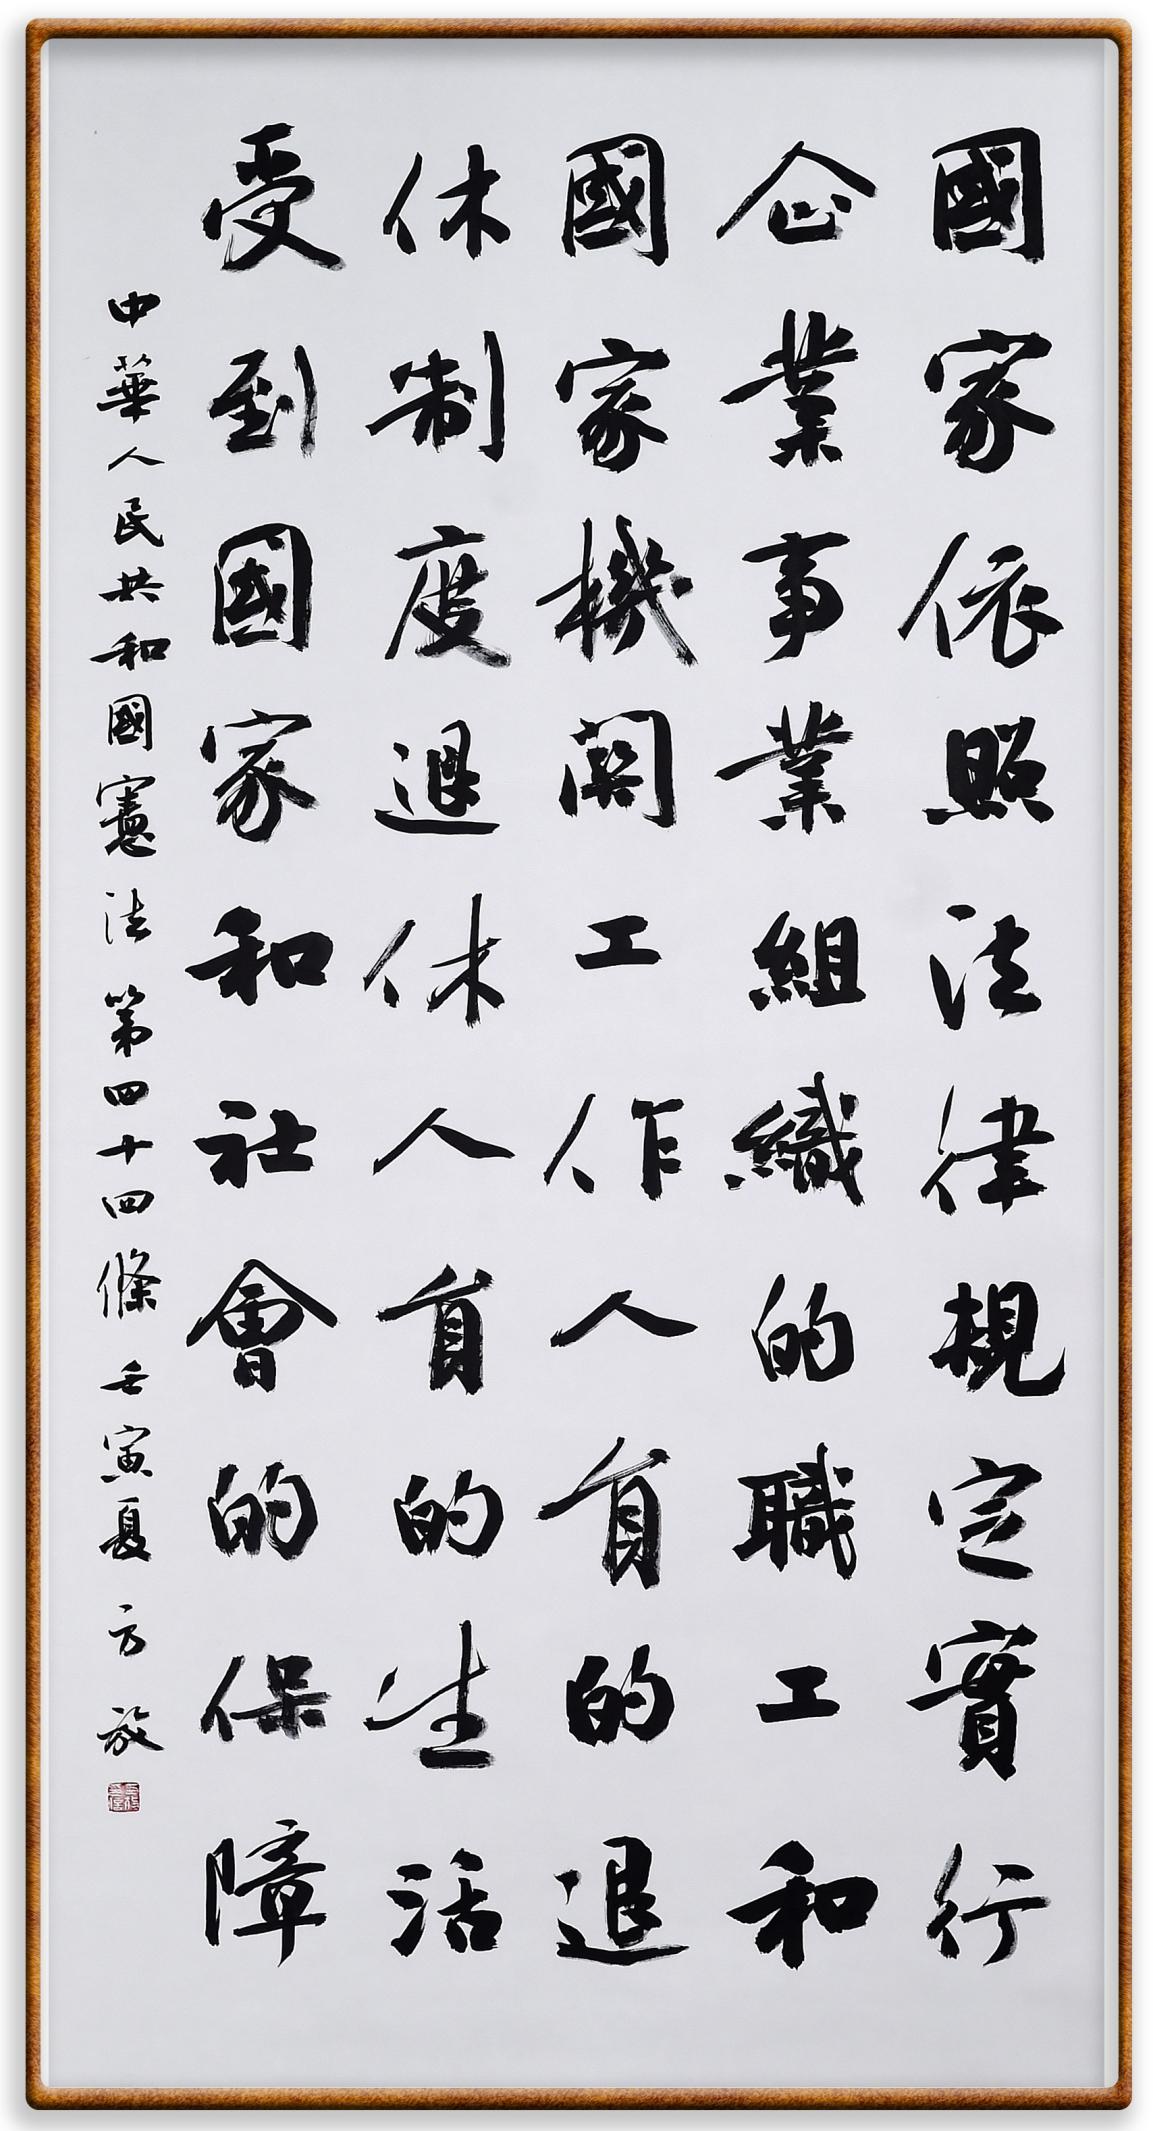 國家依照法律規定實行
企業事業組織的職工和
國家機關工作人員的退
休制度退休人員的生活
受到國家和社會的保障
中華人民共和國憲法第四十四條 壬寅夏 方放